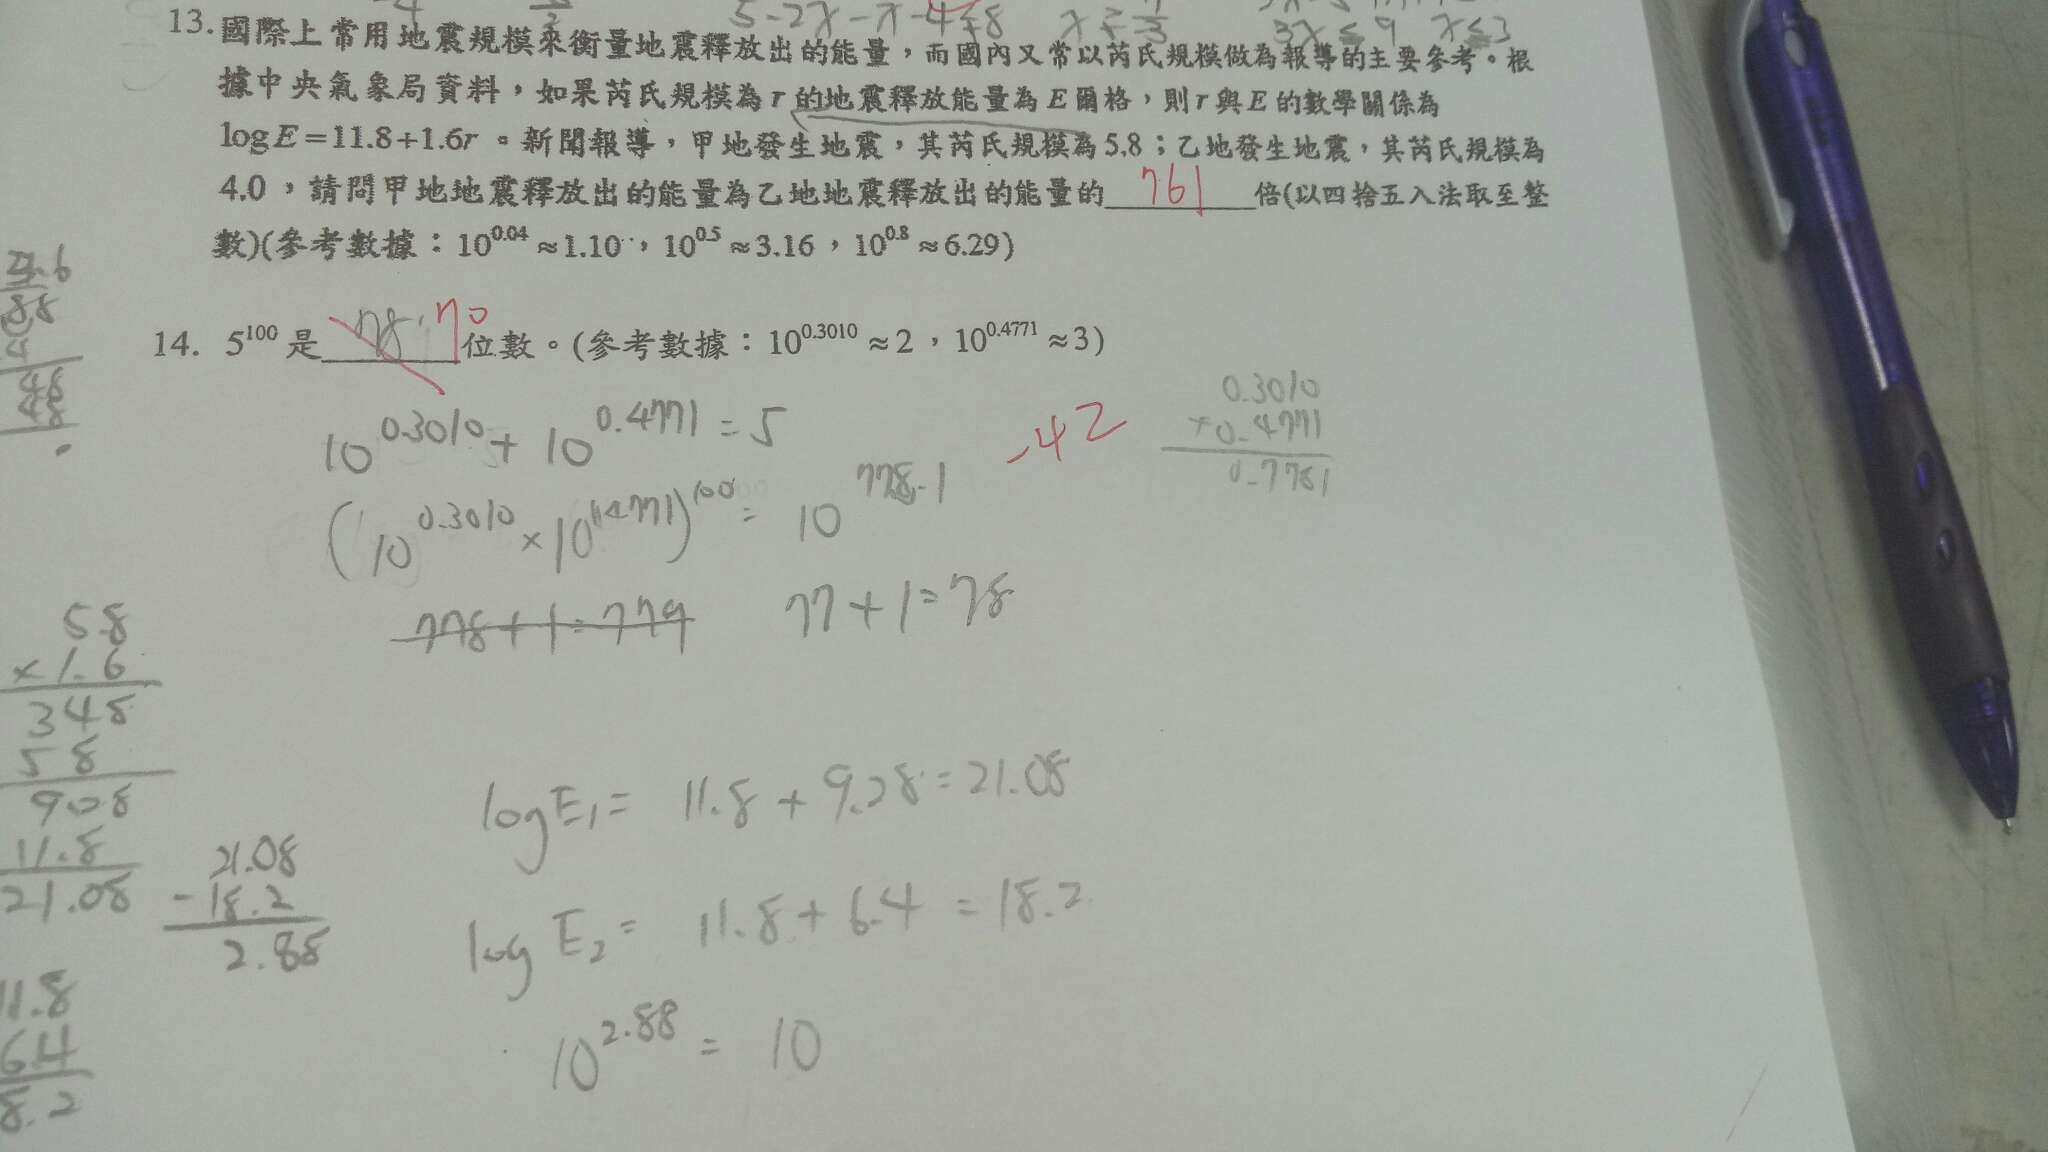 5-2x-x-4≤8
3x≤9 x≤3
13.國際上常用地震規模來衡量地震釋放出的能量,而國內又常以芮氏規模做為報導的主要參考。根
據中央氣象局資料,如果芮氏規模為r的地震釋放能量為E爾格,則r與E的數學關係為
logE=11.8+1.6r。新聞報導,甲地發生地震,其芮氏規模為5.8;乙地發生地震,其芮氏規模為
4.0,請問甲地地震釋放出的能量為乙地地震釋放出的能量的 761 倍(以四捨五入法取至整
數)(參考數據:10^0.04≈1.10,10^0.5≈3.16,10^0.8≈6.29)
14. 5^100是 78 70 位數。(參考數據:10^0.3010≈2,10^0.4771≈3)
10^0.3010 + 10^0.4771 = 5
-42
0.3010
+0.4771
0.7781
(10^0.3010 × 10^0.4771)^100 = 10^778.1
778+1=779 77+1=78
88
48
48
5.8
×1.6
348
58
908
11.8
21.08
21.08
-18.2
2.88
logE₁= 11.8+9.28=21.08
log E₂= 11.8+6.4=18.2
10^2.88 = 10
11.8
6.4
8.2